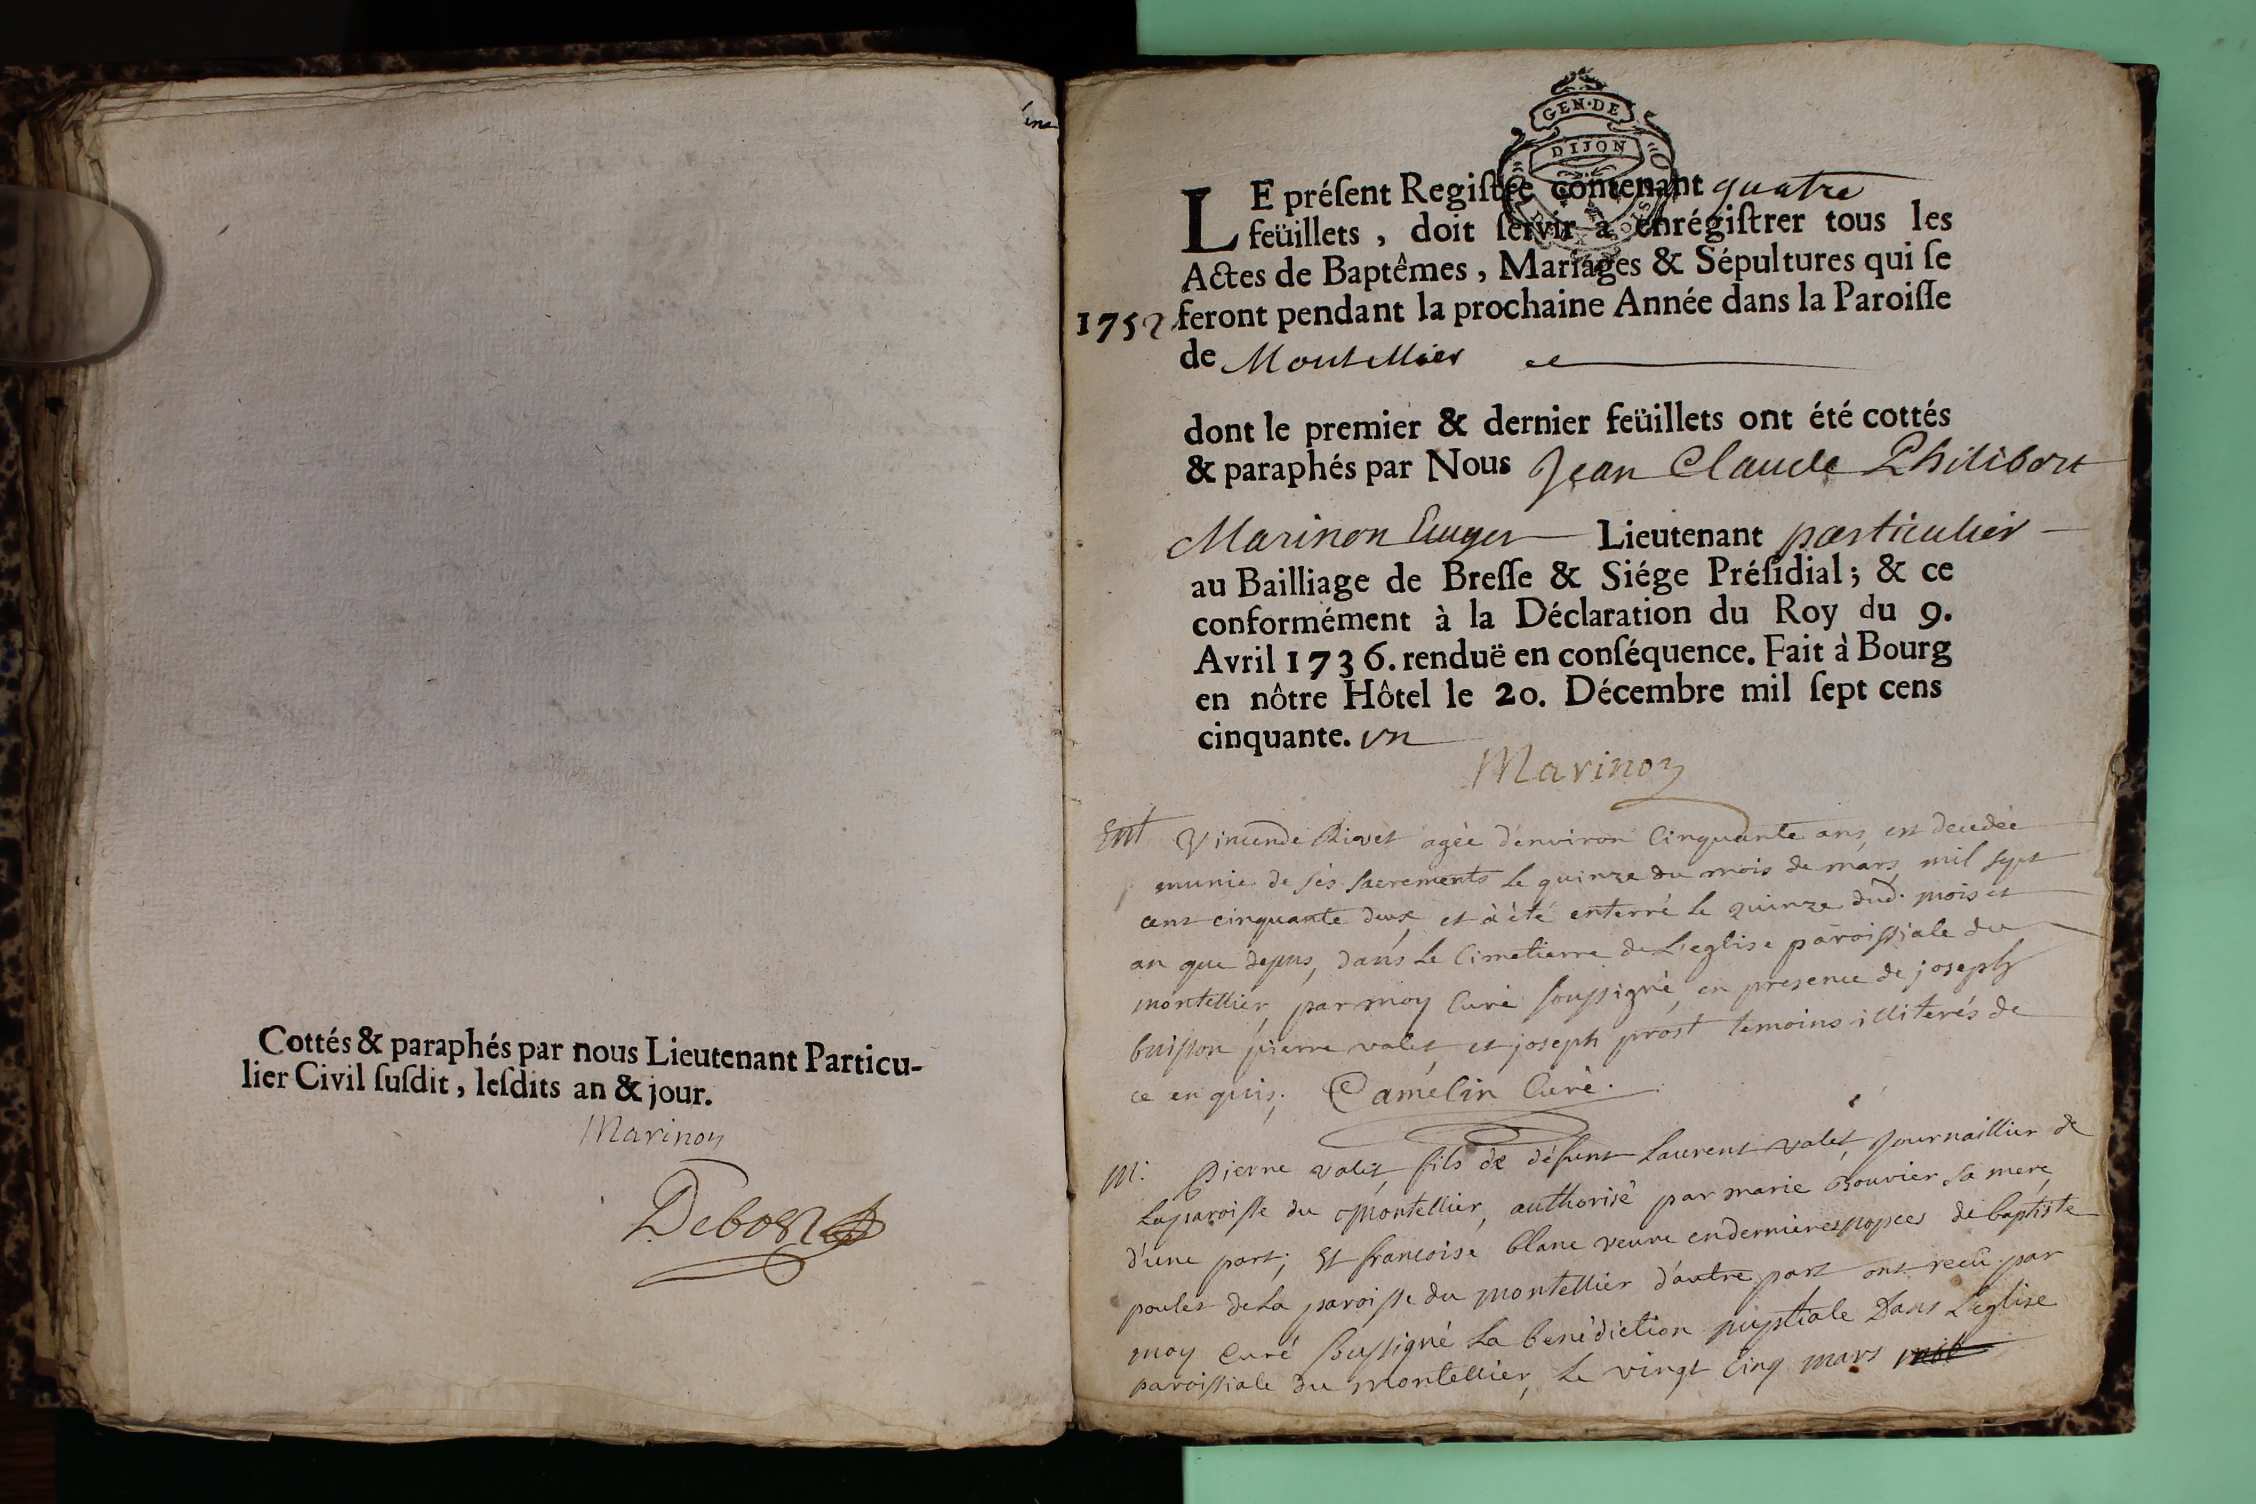 Cottés & paraphés par nous Lieutenant Particu-
lier Civil ſuſdit, leſdits an & jour.
Marinon
GEN·DE
DIJON
LE préſent Regiſtre contenant quatre
feüillets, doit ſervir a enrégiſtrer tous les
Actes de Baptêmes, Mariages & Sépultures qui ſe
1752 feront pendant la prochaine Année dans la Paroiſſe
de Montellier
dont le premier & dernier feüillets ont été cottés
& paraphés par Nous Jean Claude Philibert
Marinon Lieutenant particulier
au Bailliage de Breſſe & Siége Préſidial; & ce
conformément à la Déclaration du Roy du 9.
Avril 1736. renduë en conſéquence. Fait à Bourg
en nôtre Hôtel le 20. Décembre mil ſept cens
cinquante. un
Marinon
Ent vincende agée d'environ Cinquante ans, est decedée
munie de ses sacrements le quinze du mois de mars mil sept
cent cinquante deux, et à été enterré le quinze dud. mois et
an que dessus, dans le Cimetierre de L'eglise paroissiale du
montellier, par moy Curé soussigné, en presence de joseph
buisson pierre valet, et joseph prost temoins illiterés de
ce enquis. Camelin Curé.
M. Pierre valet, fils de défunt Laurent valet, Journaillier de
La paroisse du Montellier, authorisé par marie Bouvier sa mere,
d'une part; Et francoise blanc veuve en dernieres nopces de baptiste
poulet de La paroisse du montellier d'autre part ont recû par
moy Curé soussigné La benédiction nuptiale Dans L'eglise
paroissiale du montellier, le vingt cinq mars